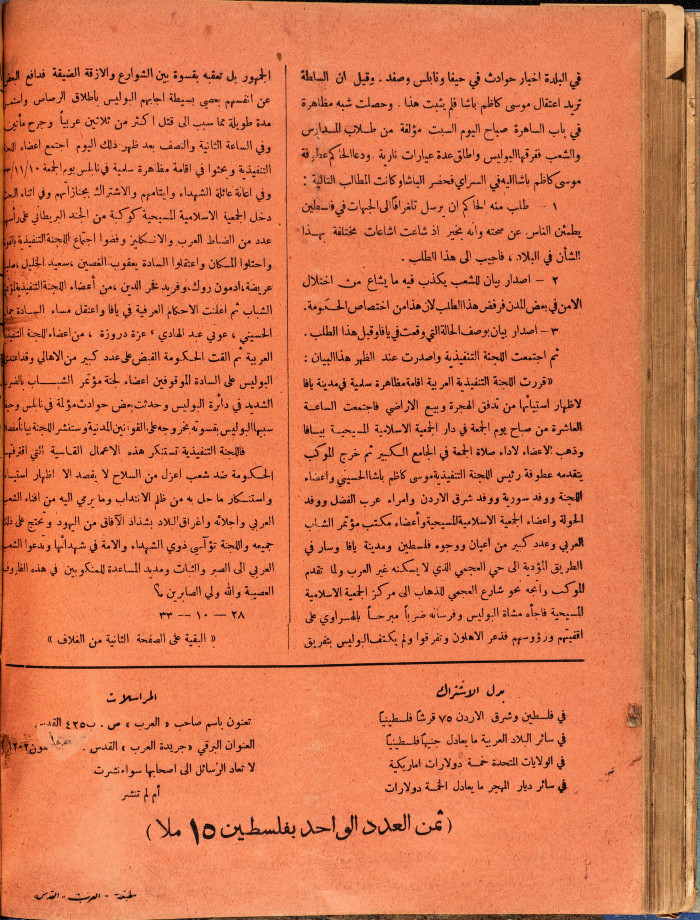 في البلدة اخبار حوادث في حيفا ونابلس وصفد . وقيل ان السلطة
تريد اعتقال موسى كاظم باشا فلم يثبت هذا . وحصلت شبه مظاهرة
في باب الساهرة صباح اليوم السبت مؤلفة من طلاب المدارس
والشعب ففرقها البوليس واطلق عدة عيارات نارية . ودعا الحاكم عطوفة
موسى كاظم باشا اليه في السراي فحضر الباشا وكانت المطالب التالية :
١ — طلب منه الحاكم ان يرسل تلغرافاً الى الجهات في فلسطين
يطمئن الناس عن صحته وأنه بخير اذ شاعت اشاعات مختلفة بهذا
الشأن في البلاد ، فاجيب الى هذا الطلب .
٢ — اصدار بيان للشعب يكذب فيه ما يشاع من اختلال
الامن في بعض المدن فرفض هذا الطلب لان هذا من اختصاص الحكومة.
٣ — اصدار بيان بوصف الحالة التي وقعت في يافا وقبل هذا الطلب .
ثم اجتمعت اللجنة التنفيذية واصدرت عند الظهر هذا البيان :
« قررت اللجنة التنفيذية العربية اقامة مظاهرة سلمية في مدينة يافا
لاظهار استيائها من تدفق الهجرة وبيع الاراضي فاجتمعت الساعة
العاشرة من صباح يوم الجمعة في دار الجمعية الاسلامية المسيحية بيافا
وذهب الاعضاء لاداء صلاة الجمعة في الجامع الكبير ثم خرج الموكب
يتقدمه عطوفة رئيس اللجنة التنفيذية موسى كاظم باشا الحسيني واعضاء
اللجنة ووفد سورية ووفد شرق الاردن وامراء عرب الفضل ووفد
الحولة واعضاء الجمعية الاسلامية المسيحية وأعضاء مكتب مؤتمر الشباب
العربي وعدد كبير من اعيان ووجوه فلسطين ومدينة يافا وسار في
الطريق المؤدية الى حي العجمي الذي لا يسكنه غير العرب ولما تقدم
الموكب واتجه نحو شارع العجمي للذهاب الى مركز الجمعية الاسلامية
المسيحية فاجأه مشاة البوليس وفرسانه ضرباً مبرحاً بالهراوي على
اقفيتهم ورؤوسهم فذعر الاهلون وتفرقوا ولم يكتف البوليس بتفريق
الجمهور بل تعقبه بقسوة بين الشوارع والازقة الضيقة فدافع
عن انفسهم بعصي بسيطة اجابهم البوليس باطلاق الرصاص
مدة طويلة مما سبب الى قتل اكثر من ثلاثين عربياً وجرح
وفي الساعة الثانية والنصف بعد ظهر ذلك اليوم اجتمع اعضاء
التنفيذية وبحثوا في اقامة مظاهرة سلمية في نابلس يوم الجمعة
وفي اعانة عائلة الشهداء وايتامهم والاشتراك بجنازاتهم وفي اثناء
دخل الجمعية الاسلامية المسيحية كوكبة من الجند البريطاني على
عدد من الضباط العرب والانكليز وفضوا اجتماع اللجنة التنفيذية
واحتلوا المكان واعتقلوا السادة يعقوب الغصين ، سعيد الخليل ،
عريضة ، ادمون روك ، وفريد فخر الدين ، من أعضاء اللجنة التنفيذية
الشباب ثم اعلنت الاحكام العرفية في يافا واعتقل مساء السادة
الحسيني ، عوني عبد الهادي ، عزة دروزة ، من اعضاء اللجنة
العربية ثم القت الحكومة القبض على عدد كبير من الاهالي
البوليس على السادة الموقوفين اعضاء لجنة مؤتمر الشباب
الشديد في دائرة البوليس وحدثت بعض حوادث مؤلمة في نابلس
سببها البوليس بقسوته بخروجه على القوانين المدنية وستنشر اللجنة بياناً
فاللجنة التنفيذية تستنكر هذه الاعمال القاسية التي
الحكومة ضد شعب اعزل من السلاح لا يقصد الا اظهار
واستنكار ما حل به من ظلم الانتداب وما يرمي اليه من افناء
العربي واجلائه واغراق البلاد بشذاذ الآفاق من اليهود وتحتج على
جميعه واللجنة تؤآسي ذوي الشهداء والامة في شهدائها وتدعوا
العربي الى الصبر والثبات ومد يد المساعدة للمنكوبين في هذه الظروف
العصيبة والله ولي الصابرين م؟
٢٨ — ١٠ — ٣٣
« البقية على الصفحة الثانية من الغلاف »
بدل الاشتراك
في فلسطين وشرق الاردن ٧٥ قرشاً فلسطينياً
في سائر البلاد العربية ما يعادل جنيهاً فلسطينياً
في الولايات المتحدة خمسة دولارات اماريكية
في سائر ديار المهجر ما يعادل الخمسة دولارات
المراسلات
تعنون باسم صاحب « العرب » ص . ب ٤٢٥ القدس
العنوان البرقي «جريدة العرب» القدس .
لا تعاد الرسائل الى اصحابها سواء نشرت
أم لم تنشر
(ثمن العدد الواحد بفلسطين ١٥ ملا)
مطبعة « العرب » القدس